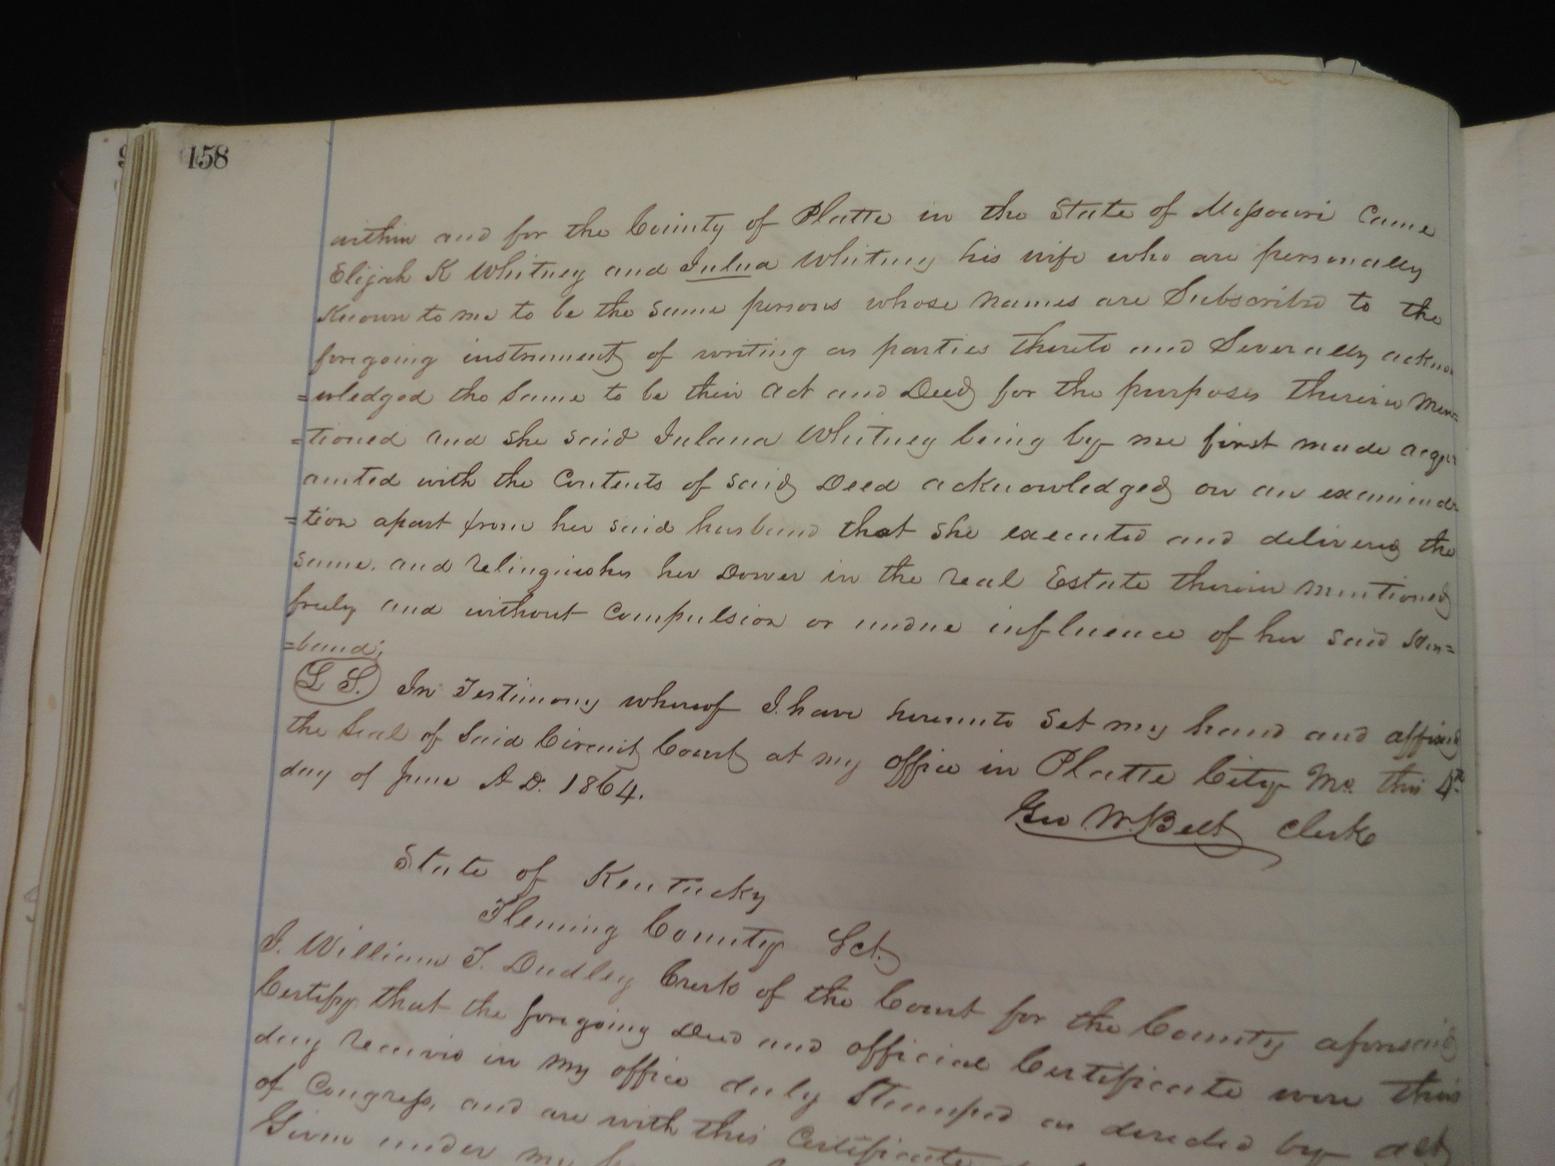 158
within and for the County of Platte in the State of Missouri Came
Elijah K Whitney and Whitney his wife who are personally
Known to me to be the same persons whose names are Subscribed to the
foregoing instrument of writing as parties thereto and Severally ackno
=wledged the Same to be their act and Deed for the purposes therein Men=
=tioned and she said Whitney being by me first made acqu
ainted with the Contents of said Deed acknowledged on an examina
=tion apart from her said husband that she executed and delivered the
same. and relinquishes her Dower in the real Estate therein mentioned
freely and without Compulsion or undue influence of her said Hus=
=band;
L S. In Testimony whereof I have hereunto Set my hand and affixed
the Seal of Said Circuit Court at my office in Platte City Mo. this 4th
day of June A D. 1864.
Geo W. Belt Clerk
State of Kentucky
Fleming County Sct.
I. William T. Dudley Clerk of the Court for the County aforesaid
Certify that the foregoing Deed and official Certificate were this
day received in my office duly Stamped as directed by act
of Congress, and are with this Certificate
Given under my